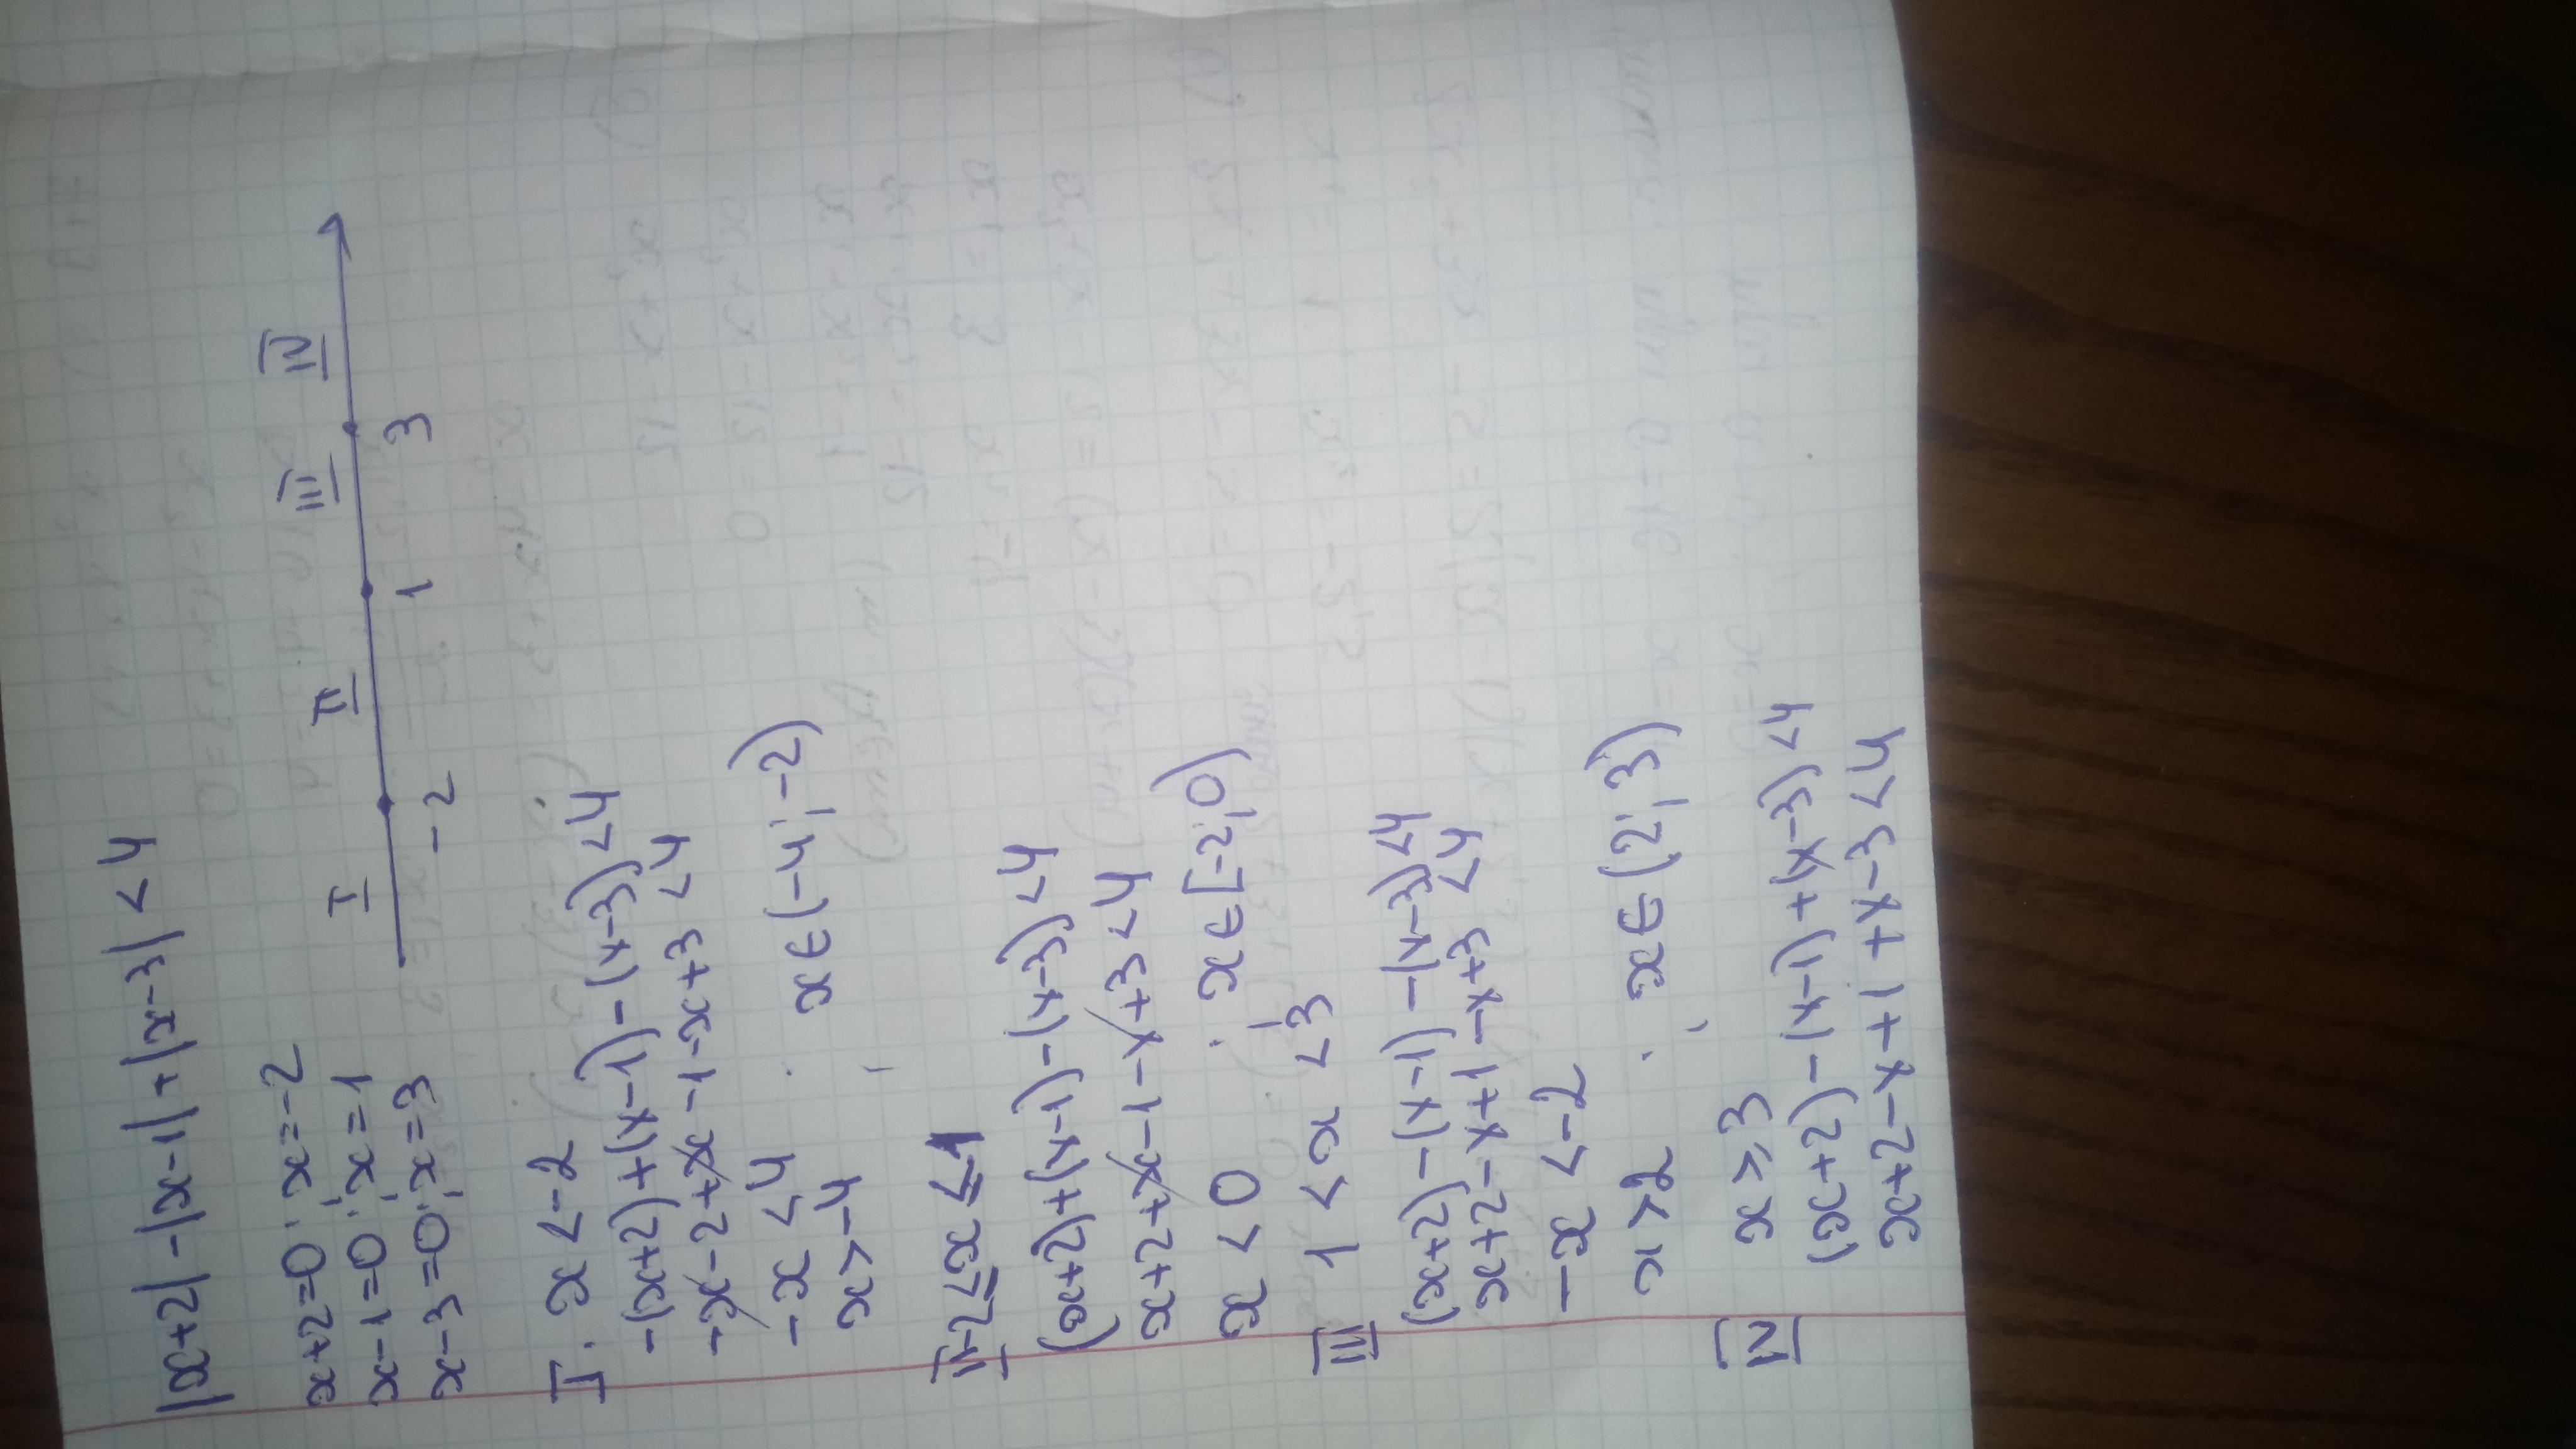 |x+2|-|x-1|+|x-3|<4
x+2=0; x=-2
x-1=0; x=1
x-3=0; x=3
I II III IV
-2 1 3
I. x<-2
-(x+2)+(x-1)-(x-3)<4
-x-2+x-1-x+3<4
-x<4
x>-4 ; x∈(-4;-2)
II -2≤x≤1
(x+2)+(x-1)-(x-3)<4
x+2+x-1-x+3<4
x<0 ; x∈[-2;0)
III 1<x<3
(x+2)-(x-1)-(x-3)<4
x+2-x+1-x+3<4
-x<-2
x>2 ; x∈(2;3)
IV x≥3
(x+2)-(x-1)+(x-3)<4
x+2-x+1+x-3<4